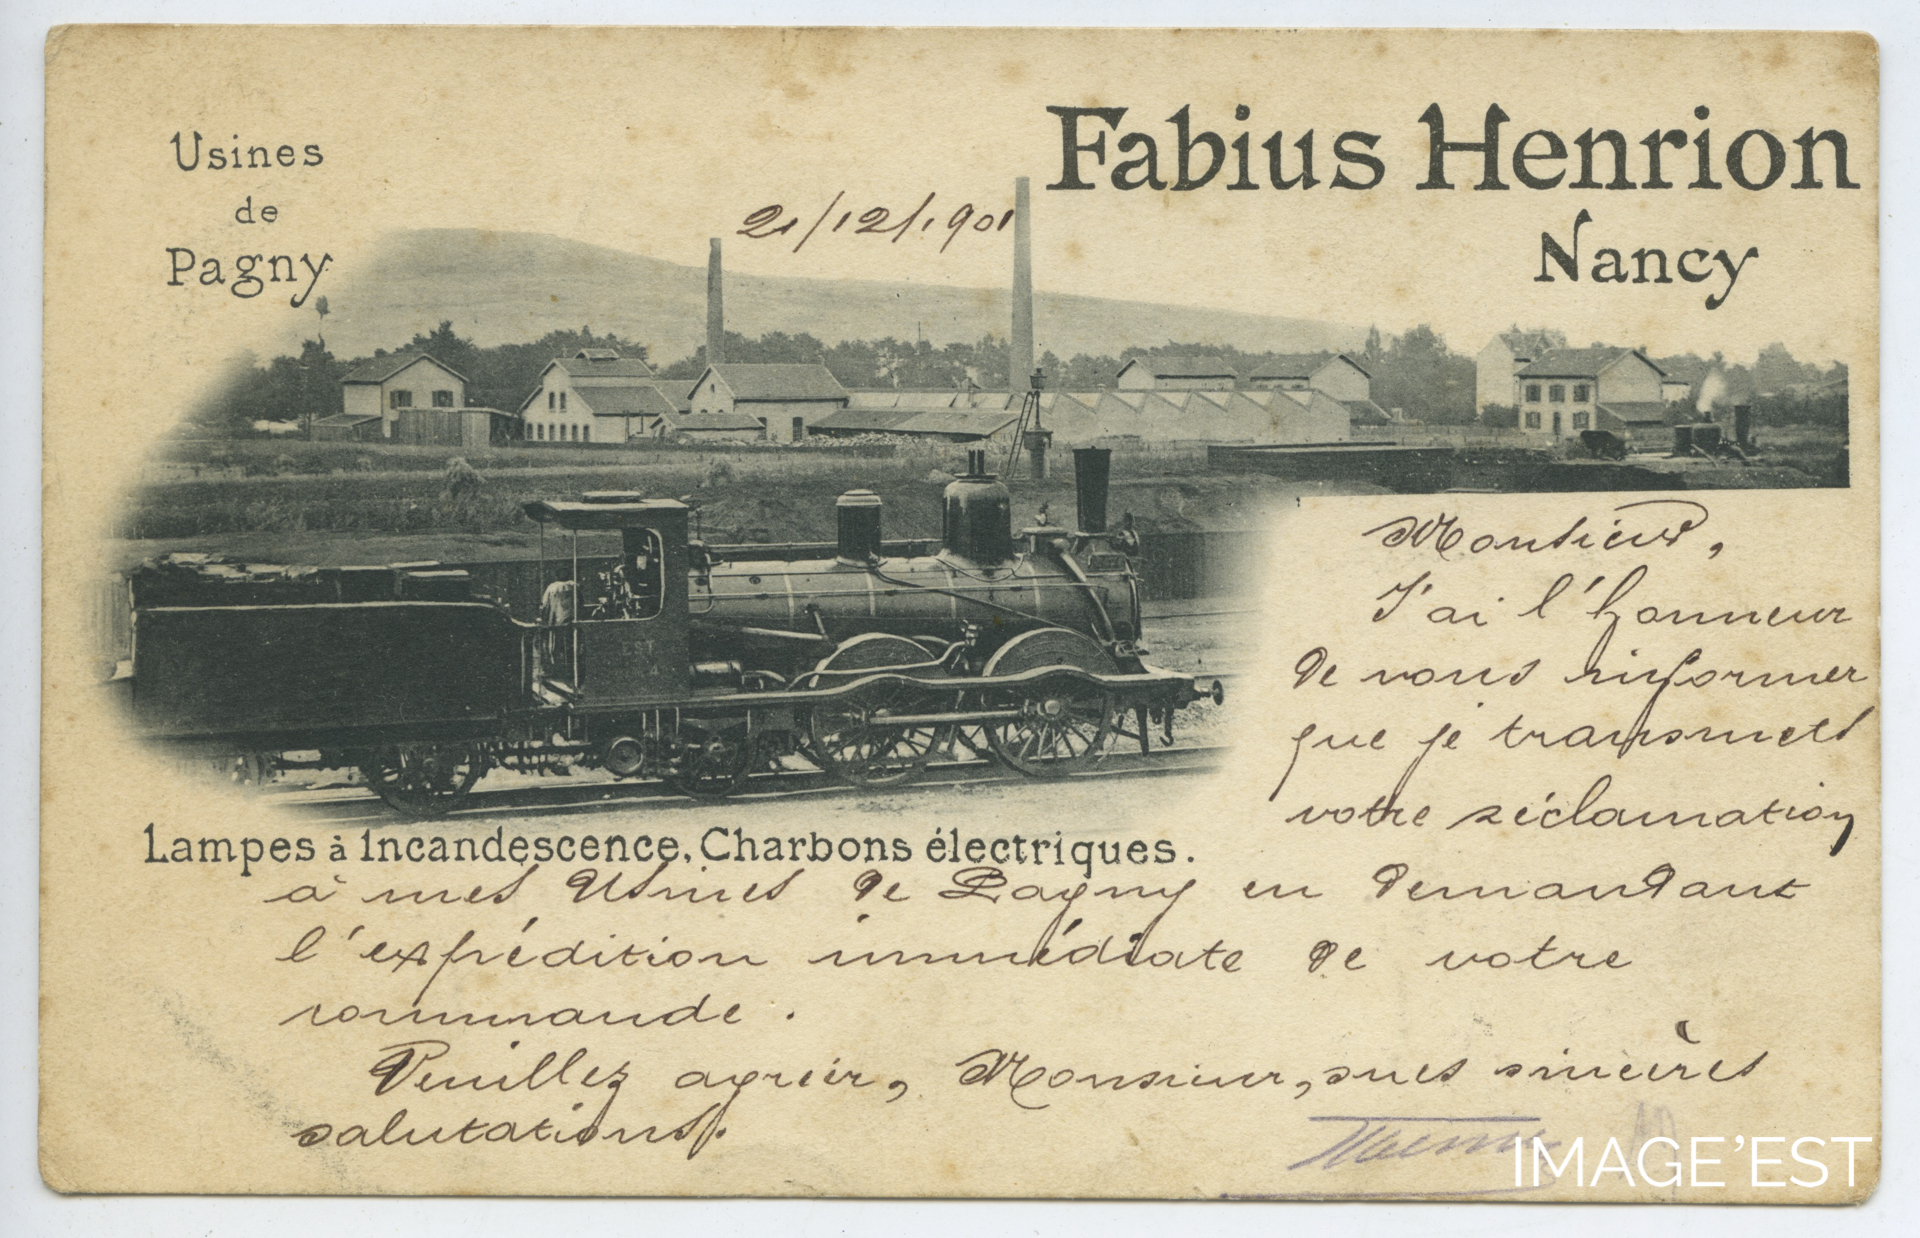 Usines
de
Pagny
Fabius Henrion
Nancy
21/12/1901
EST
Monsieur,
J'ai l'honneur
de vous informer
que je transmets
votre réclamation
Lampes à Incandescence, Charbons électriques.
à mes Usines de Pagny en demandant
l'expédition immédiate de votre
commande.
Veuillez agréer, Monsieur, mes sincères
salutations.
IMAGE'EST